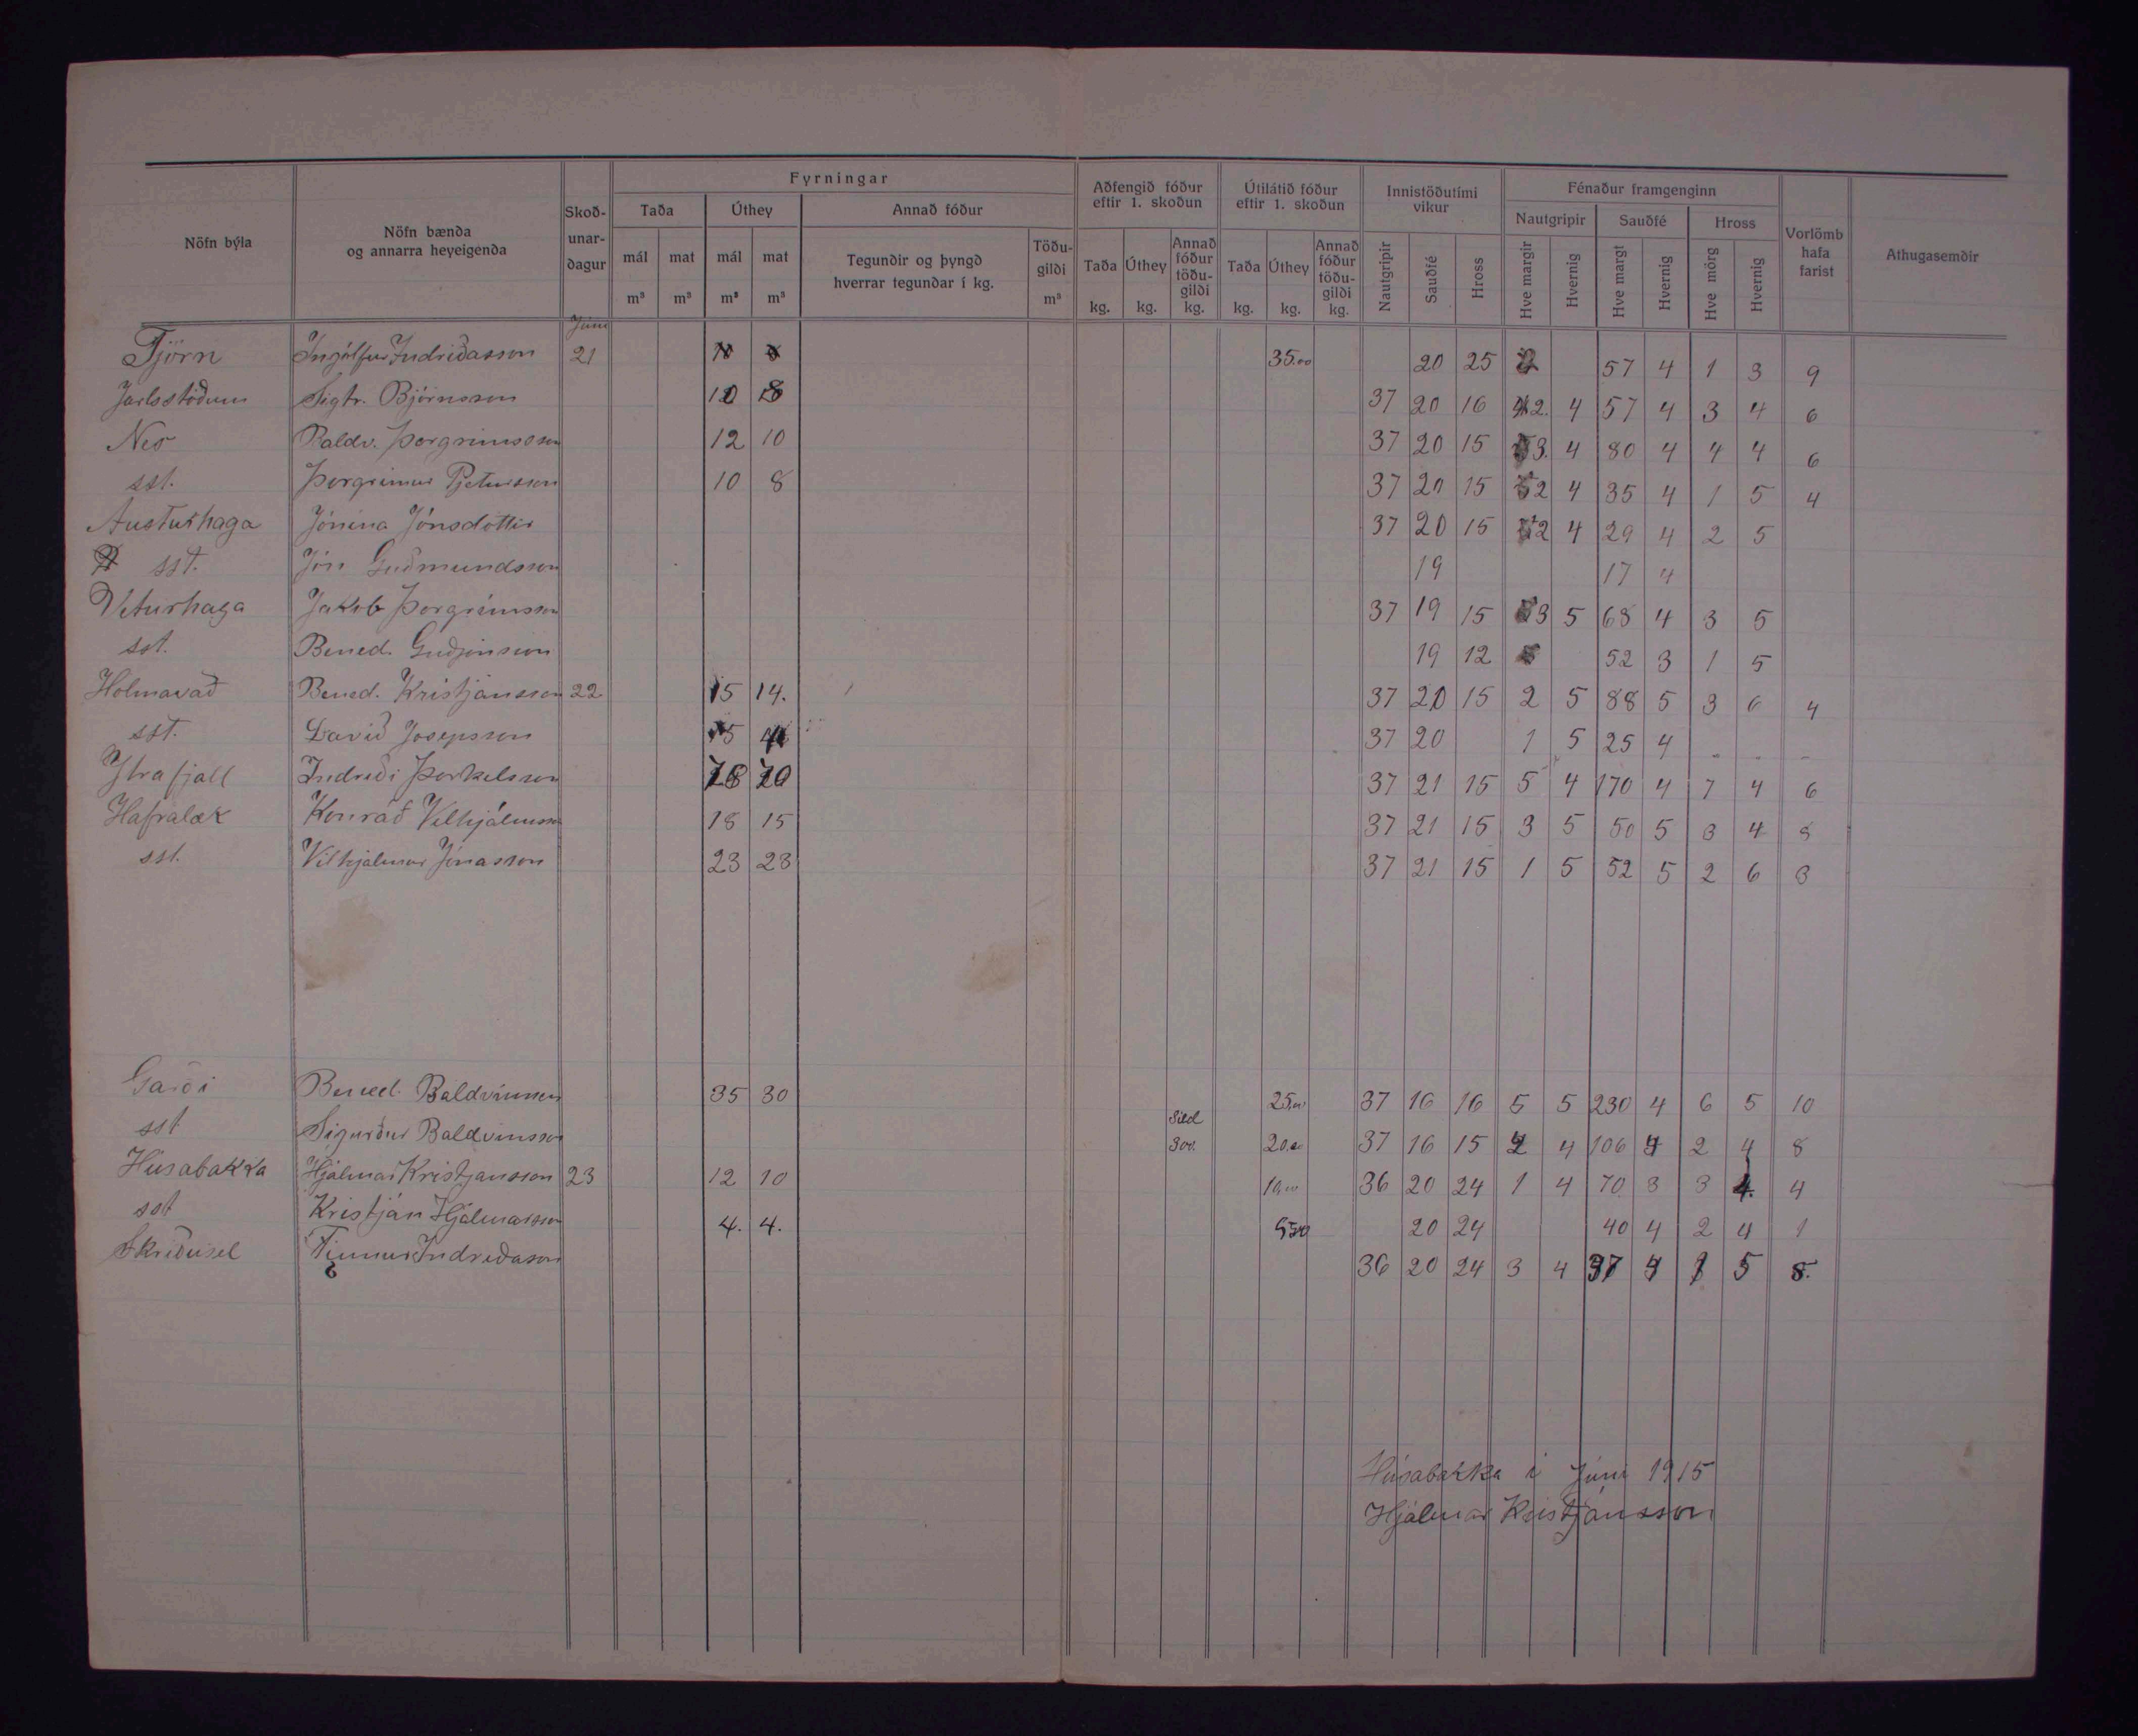 Fyrningar
Aðfengið fóður eftir 1. skoðun
Útilátið fóður eftir 1. skoðun
Innistöðutími vikur
Fénaður framgenginn
Nöfn býla
Nöfn bænda og annarra heyeigenda
Skoð-unar-dagur
Taða
Úthey
Annað fóður
Nautgripir
Sauðfé
Hross
Vorlömb hafa farist
Athugasemdir
mál m³
mat m³
mál m³
mat m³
Tegundir og þyngd hverrar tegundar í kg.
Töðu-gildi m³
Taða kg.
Úthey kg.
Annað fóður töðu-gildi kg.
Taða kg.
Úthey kg.
Annað fóður töðu-gildi kg.
Nautgripir
Sauðfé
Hross
Hve margir
Hvernig
Hve margt
Hvernig
Hve mörg
Hvernig
Júni
Tjörn Ingólfur Indriðasson 21 35.00 20 25 57 4 1 3 9
Jarlsstöðum Sigtr. Björnsson 37 20 16 2. 4 57 4 3 4 6
Nes Baldv. Þorgrimsson 12 10 37 20 15 3. 4 80 4 4 4 6
sst. Þorgrimur Pjetursson 10 8 37 20 15 2 4 35 4 1 5 4
Austurhaga Jónina Jónsdóttir 37 20 15 2 4 29 4 2 5
sst. Jón Guðmundsson 19 17 4
Veturhaga Jakob Þorgrímsson 37 19 15 3 5 68 4 3 5
sst. Bened. Guðjonsson 19 12 52 3 1 5
Holmavað Bened. Kristjánsson 22 15 14. 37 20 15 2 5 88 5 3 6 4
sst. Davið Josepsson 15 37 20 1 5 25 4 - - -
Ytrafjall Indriði Þorkelsson 37 21 15 5 4 170 4 7 4 6
Hafralæk Konráð Vilhjálmsson 18 15 37 21 15 3 5 50 5 3 4 8
sst. Vilhjálmur Jónasson 23 23 37 21 15 1 5 52 5 2 6 3
Garði Bened. Baldvinsson 35 30 25.00 37 16 16 5 5 230 4 6 5 10
sst Sigurður Baldvinsson Síld 300. 20.00 37 16 15 2 4 106 4 2 4 8
Húsabakka Hjálmar Kristjansson 23 12 10 10,00 36 20 24 1 4 70 3 3 4. 4
sst Kristján Hjálmarsson 4. 4. 20 24 40 4 2 4 1
Skriðusel Finnur Indriðason 36 20 24 3 4 37 4 1 5 8.
Húsabakka í Júni 1915
Hjálmar Kristjánsson